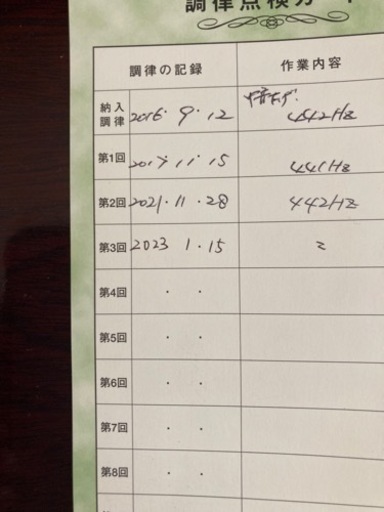 調律点検カ
調律の記録 作業内容
納入調律 2016・9・12 442Hz
第1回 2017・11・15 441Hz
第2回 2021・11・28 442HZ
第3回 2023 1・15
第4回 ・ ・
第5回 ・ ・
第6回 ・ ・
第7回 ・ ・
第8回 ・ ・